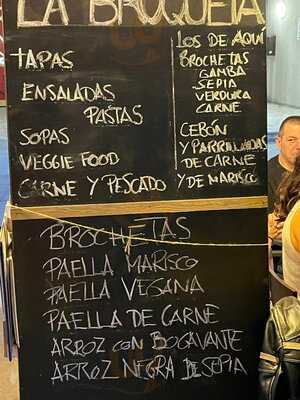 LA BROQUETA
TAPAS
ENSALADAS
PASTAS
SOPAS
VEGGIE FOOD
CARNE Y PESCADO
LOS DE AQUÍ
BROCHETAS
GAMBA
SEPIA
VERDURA
CARNE
CEBÓN
Y PARRILLADAS
DE CARNE
Y DE MARISCO
BROCHETAS
PAELLA MARISCO
PAELLA VEGANA
PAELLA DE CARNE
ARROZ CON BOGAVANTE
ARROZ NEGRA DE SEPIA